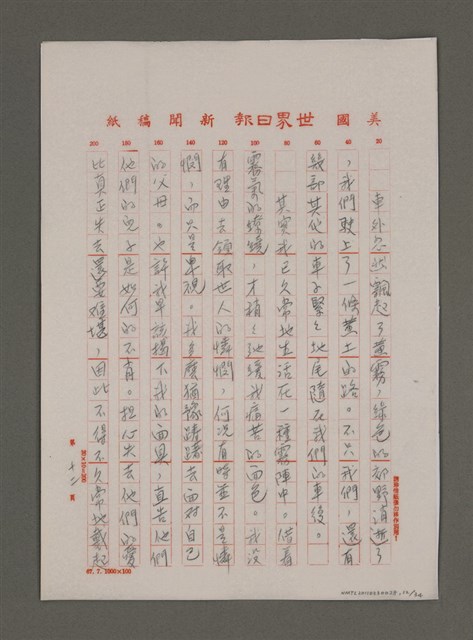 美國世界日報新聞稿紙
20
40
60
80
100
120
140
160
180
200
車外忽然飄起了黃霧，綠色的郊野消逝了
，我們駛上了一條黃土的路。不只我們，還有
幾部其他的車子緊々地尾隨在我們的車後。
其實我已久常地生活在一種霧陣中。借着
霧氣的繚繞，才稍々地緩我痛苦的面色。我沒
有理由去領取世人的憐憫，何況有時並不是憐
憫，而只是卑視。我多麼猶豫躊躇去面對自己
的父母。也許我早該揚下我的面具，直告他們
他們的兒子是如何的不肖。担心失去他們的愛
比真正失去還要難堪，因此不得不久常地戴起
第 十二 頁
20×10=200
67.7.2000×100